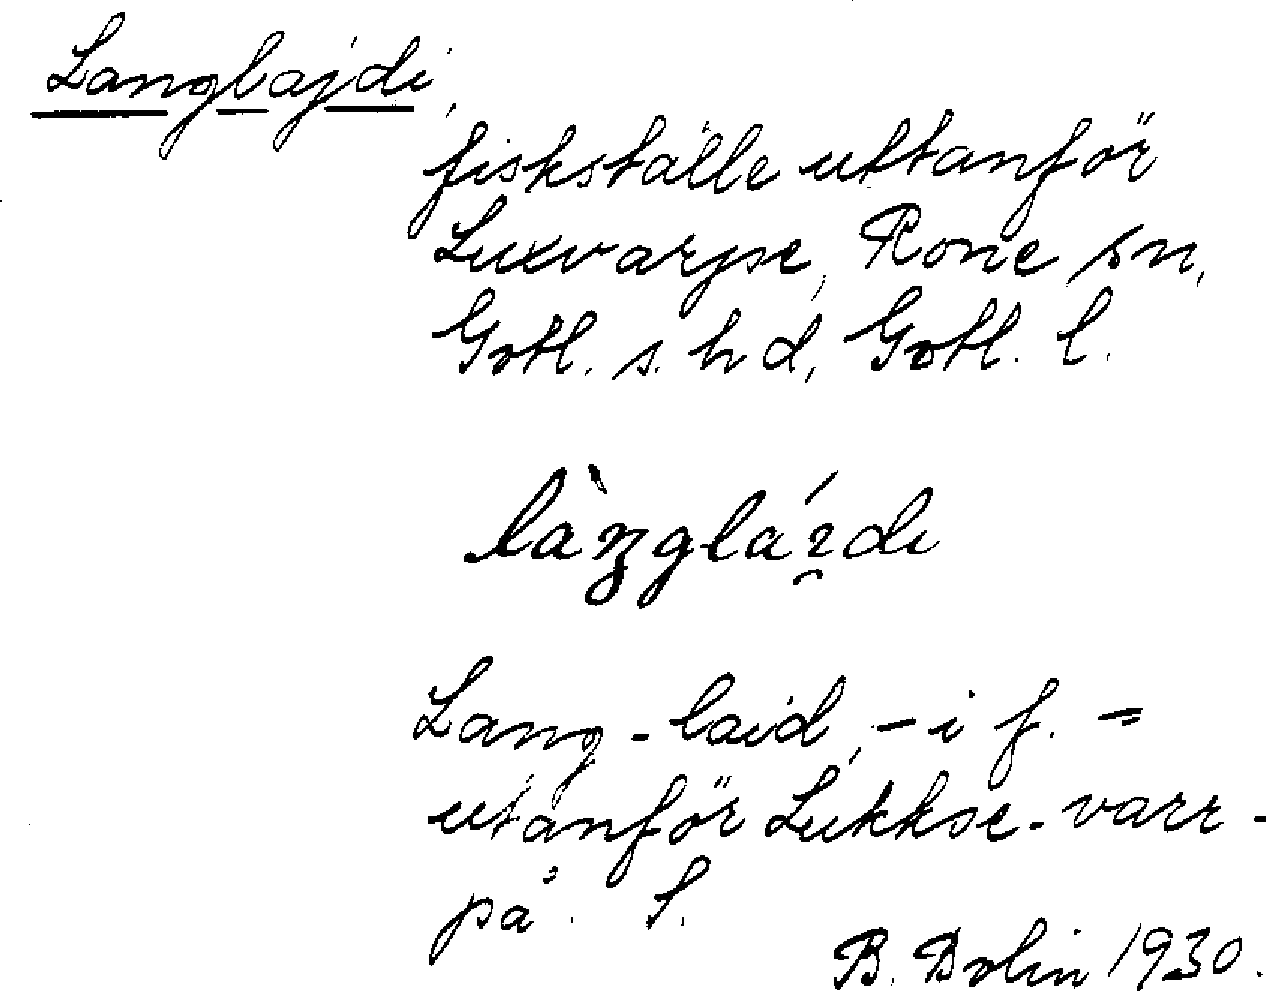 Langlajdi,
fiskställe uttanför
Luxvarpe, Rone sn,
Gotl. s. hd, Gotl. l.
Lang-laid, -i f. =
utanför Lukkse-varr-
på. S.
B. Bolin 1930.